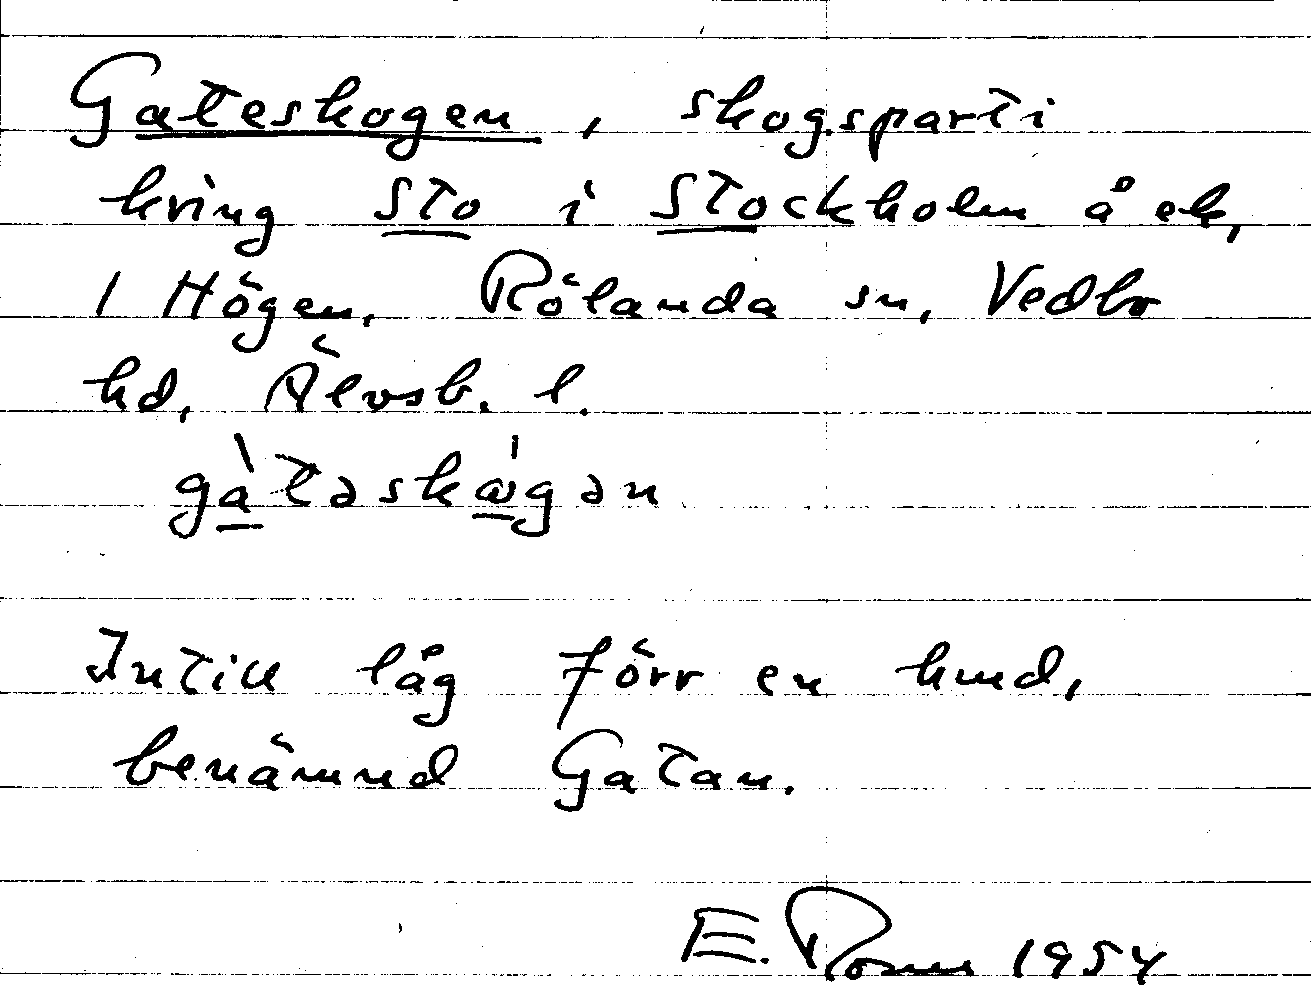 Gateskogen, skogsparti
kring Sto i Stockholm å ek,
1 Högen, Rölanda sn, Vedbo
hd, Älvsb. l.
gàtəskɷ̀gən
Intill låg förr en hmd,
benämnd Gatan.
E. 1954